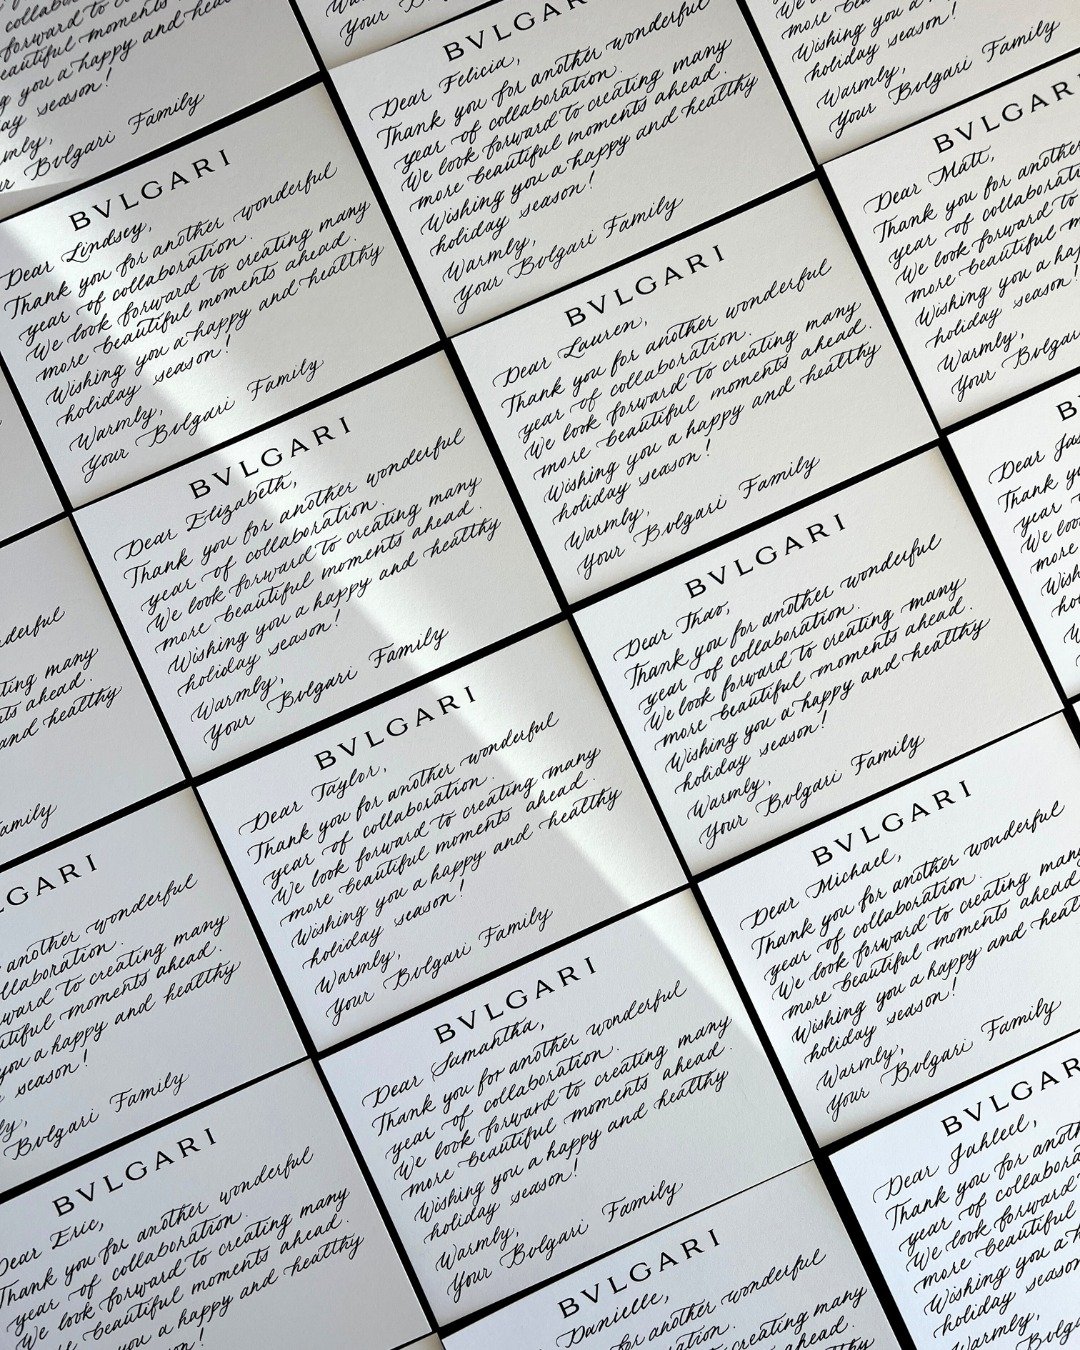 moments
you a happy and
season!
Bvlgari Family
Your
BVLGARI
Dear Felicia,
Thank you for another wonderful
year of collaboration.
We look forward to creating many
more beautiful moments ahead.
Wishing you a happy and healthy
holiday season!
Warmly,
Your Bvlgari Family
Wishing you a
holiday season!
Warmly,
Your Bvlgari Family
BVLGARI
Dear Lindsey,
Thank you for another wonderful
year of collaboration.
We look forward to creating many
more beautiful moments ahead.
Wishing you a happy and healthy
holiday season!
Warmly,
Your Bvlgari Family
BVLGAR
Dear Matt,
Thank you for another
year of
We look forward to
more beautiful
Wishing you a
holiday season!
Warmly,
Your
BVLGARI
Dear Lauren,
Thank you for another wonderful
year of collaboration.
We look forward to creating many
more beautiful moments ahead.
Wishing you a happy and healthy
holiday season!
Warmly,
Your Bvlgari Family
BVLGARI
Dear Elizabeth,
Thank you for another wonderful
year of collaboration.
We look forward to creating many
more beautiful moments ahead.
Wishing you a happy and healthy
holiday season!
Warmly,
Your Bvlgari Family
Dear
Thank you
year
We
more
many
ahead.
and healthy
BVLGARI
Dear Thao,
Thank you for another wonderful
year of collaboration.
We look forward to creating many
more beautiful moments ahead.
Wishing you a happy and healthy
holiday season!
Warmly,
Your Bvlgari Family
BVLGARI
Dear Taylor,
Thank you for another wonderful
year of collaboration.
We look forward to creating many
more beautiful moments ahead.
Wishing you a happy and healthy
holiday season!
Warmly,
Your Bvlgari Family
LGARI
another wonderful
to creating many
moments ahead.
you a happy and healthy
season!
Bvlgari Family
BVLGARI
Dear Michael,
Thank you for another wonderful
year of collaboration.
We look forward to creating many
more beautiful moments ahead
Wishing you a happy and
holiday season!
Warmly,
Your Bvlgari Family
BVLGARI
Dear Samantha,
Thank you for another wonderful
year of collaboration.
We look forward to creating many
more beautiful moments ahead.
Wishing you a happy and healthy
holiday season!
Warmly,
Your Bvlgari Family
BVLGAR
Dear Jahleel,
Thank you for
year of
We look forward
more beautiful
Wishing you a
holiday season
Warmly,
Your
BVLGARI
Dear Eric,
Thank you for another wonderful
year of collaboration.
We look forward to creating many
more beautiful moments ahead.
you a happy and healthy
BVLGARI
Danielle,
for another wonderful
creating many
ahead.